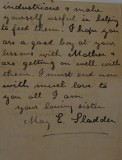 industrious & make
yourself useful in helping
to feed them. I hope you
are a good boy at your
lessons with Mother &
are getting on well with
them. I must end now
with much love to
you all I am
your loving sister
May E. Sladden